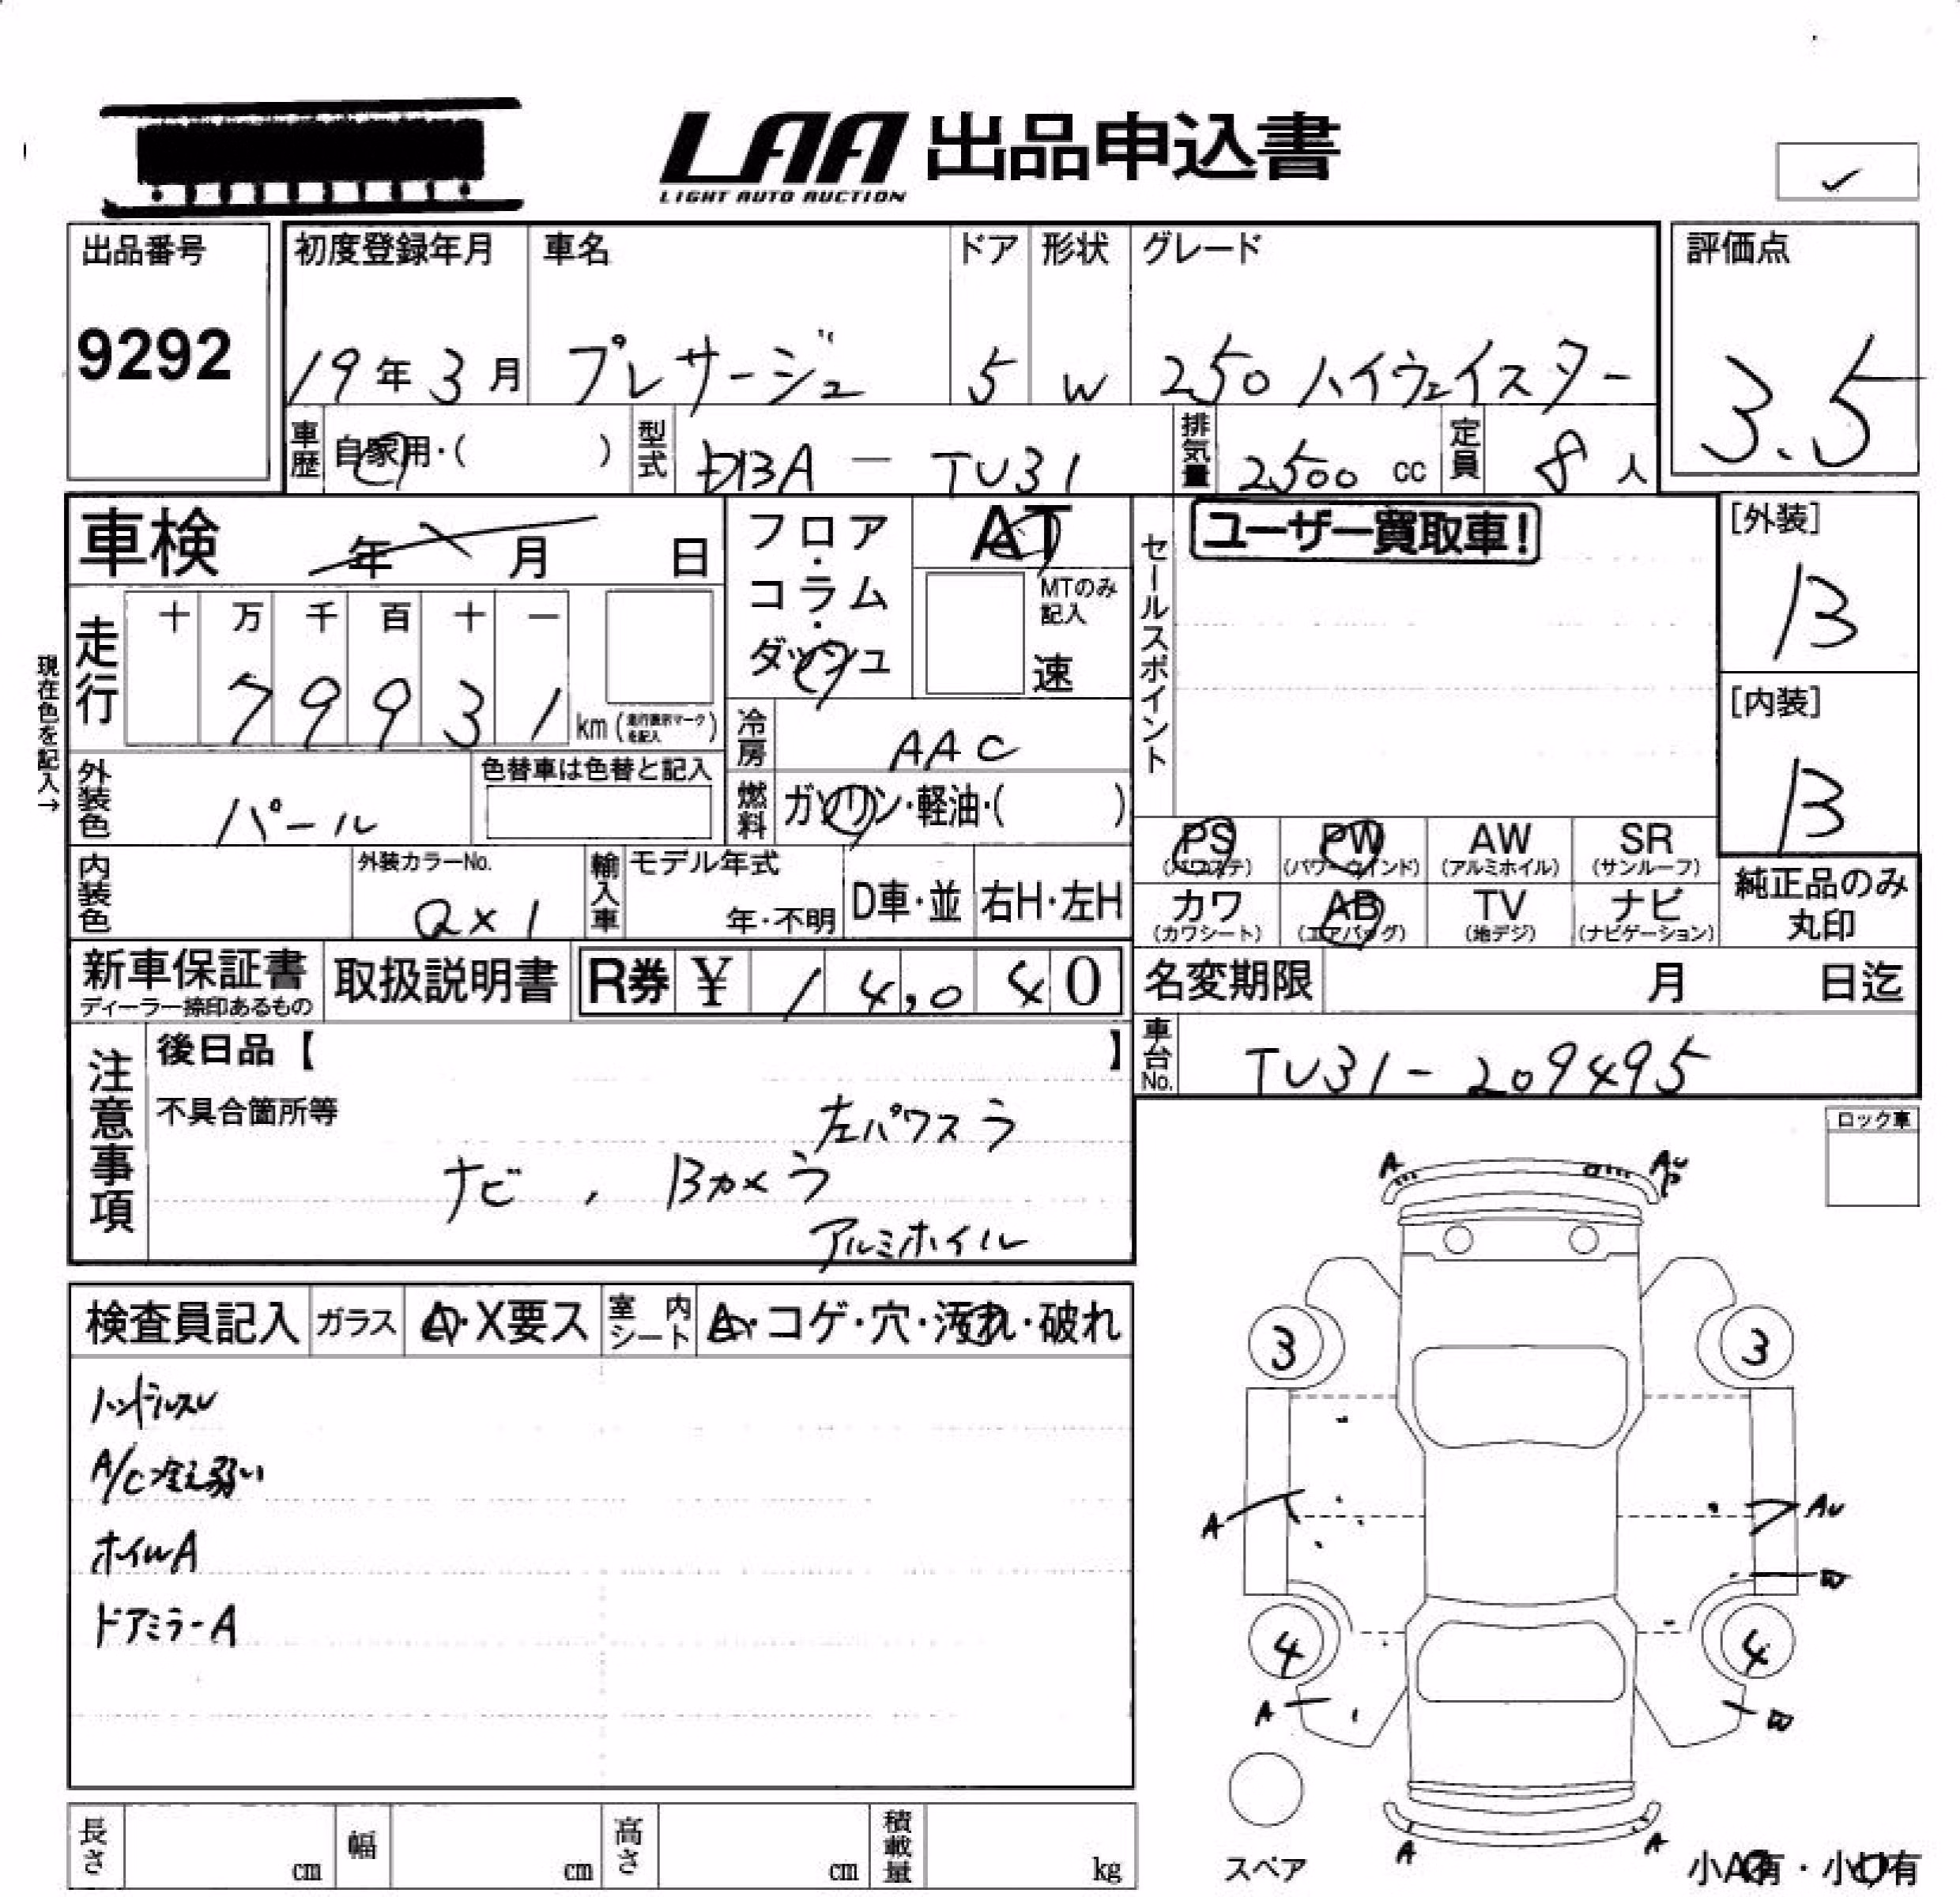 LAA 出品申込書
LIGHT AUTO AUCTION
✓
出品番号
9292
初度登録年月
19年3月
車名
プレサージュ
ドア
5
形状
W
グレード
250ハイウェイスター
評価点
3.5
車歴
自家用・( )
型式
DBA - TU31
排気量
2500 cc
定員
8人
車検 年 月 日
現在色を記入→
走行
十 万 千 百 十 一
7 9 9 3 1 km (走行表示マークを記入)
フロア・コラム・ダッシュ
AT
MTのみ記入
速
冷房
AAC
燃料
ガソリン・軽油・( )
外装色
パール
色替車は色替と記入
内装色
外装カラーNo.
QX1
輸入車
モデル年式
年・不明
D車・並
右H・左H
セールスポイント
ユーザー買取車!
[外装]
B
[内装]
B
PS (パワステ)
PW (パワーウインド)
AW (アルミホイル)
SR (サンルーフ)
カワ (カワシート)
AB (エアバッグ)
TV (地デジ)
ナビ (ナビゲーション)
純正品のみ丸印
新車保証書
ディーラー捺印あるもの
取扱説明書
R券 ¥ 14,040
名変期限 月 日迄
車台No.
TU31-209495
注意事項
後日品【 】
不具合箇所等
左パワスラ
ナビ , Bカメラ
アルミホイル
ロック車
検査員記入
ガラス
A・X要ス
室内シート
A・コゲ・穴・汚れ・破れ
ハンドルスレ
A/C冷え弱い
ホイルA
ドアミラーA
A
AU
P
3
3
A
AU
W
4
4
A
W
A
A
スペア
小A有・小U有
長さ cm
幅 cm
高さ cm
積載量 kg